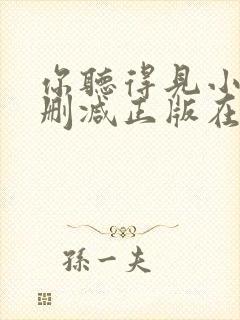 你聽得見小
删减正版在
孫一夫